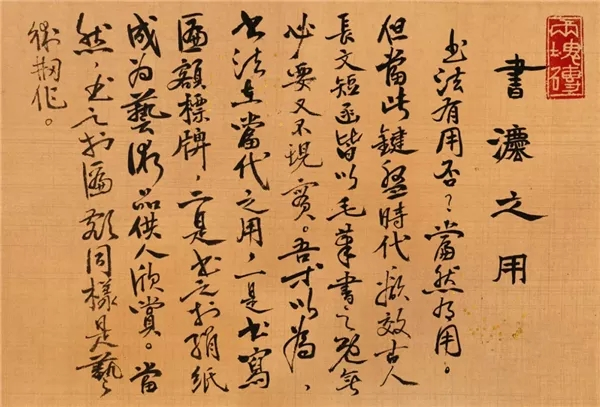 書灋之用
书法有用否?當然有用。
但當此鍵盤時代效古人
長文短函皆以毛筆書之既無
必要又不現實。吾以為、
书法在當代之用,一是书寫
匾額標牌,二是书之於绢紙
成为藝術品供人欣賞。當
然,书之於匾额同樣是藝
術創作。